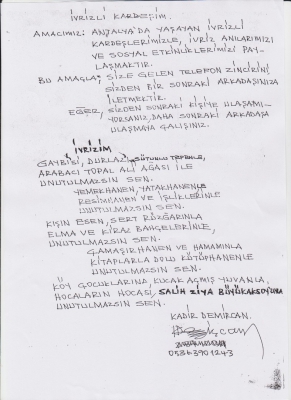 İVRİZLİ KARDEŞİM.
AMACIMIZ: ANTALYA'DA YAŞAYAN İVRİZLİ
KARDEŞLERİMİZLE, İVRİZ ANILARIMIZI
VE SOSYAL ETKİNLİKLERİMİZİ PAY-
LAŞMAKTIR.
BU AMAÇLA; SİZE GELEN TELEFON ZİNCİRİNİ
SİZDEN BİR SONRAKİ ARKADAŞINIZA
İLETMEKTİR.
EĞER, SİZDEN SONRAKİ KİŞİYE ULAŞAMI-
YORSANIZ, DAHA SONRAKİ ARKADAŞA
ULAŞMAYA ÇALIŞINIZ.
İVRİZİM
GAYBİSİ, DURLAZ, SÜTUNLU TEPENLE,
ARABACI TOPAL ALİ AĞASI İLE
UNUTULMAZSIN SEN.
YEMEKHANEN, YATAKHANENLE
RESİMHANEN VE İŞLİKLERİNLE
UNUTULMAZSIN SEN.
KIŞIN ESEN, SERT RÜZGARINLA
ELMA VE KİRAZ BAHÇELERİNLE,
UNUTULMAZSIN SEN.
ÇAMAŞIRHANEN VE HAMAMINLA
KİTAPLARLA DOLU KÜTÜPHANENLE
UNUTULMAZSIN SEN.
KÖY ÇOCUKLARINA, KUCAK AÇMIŞ YUVANLA,
HOCALARIN HOCASI, SALİH ZİYA BÜYÜKAKSOYUNLA
UNUTULMAZSIN SEN.
KADİR DEMİRCAN.
05863901243